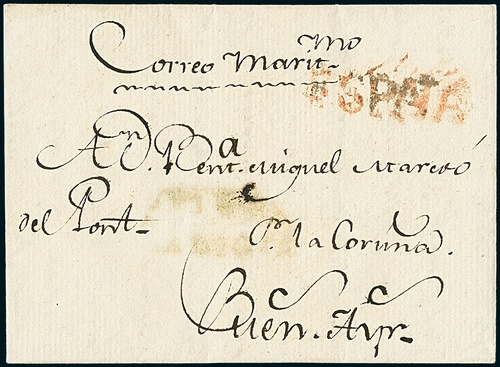 Correo Marit.mo
ESPAÑA
A Dn. Bent.a Miguel Marcó
del Pont.
Pr. la Coruña.
Buens. Ayrs.